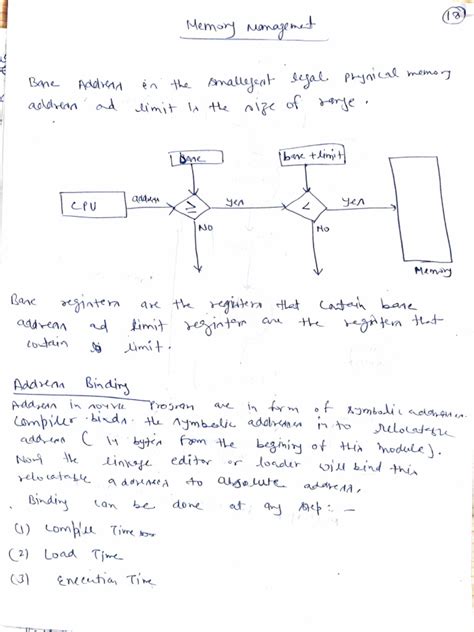 18
Memory Management
Base Address is the smallegest legal physical memory
address ad limit is the size of range.
base
base + limit
CPU
address
≥
Yes
<
Yes
No
No
Memory
Base registers are the registers that contain base
address ad limit registers are the registers that
contain limit.
Address Binding
Address in source Program are in form of symbolic addresses
Compiler binds the symbolic addresses in to relocatable
address ( 14 bytes from the begining of this module).
Now the linkage editor or loader will bind this
relocatable addresses to absolute address.
Binding can be done at any step: —
(1) Compile Time
(2) Load Time
(3) Execution Time